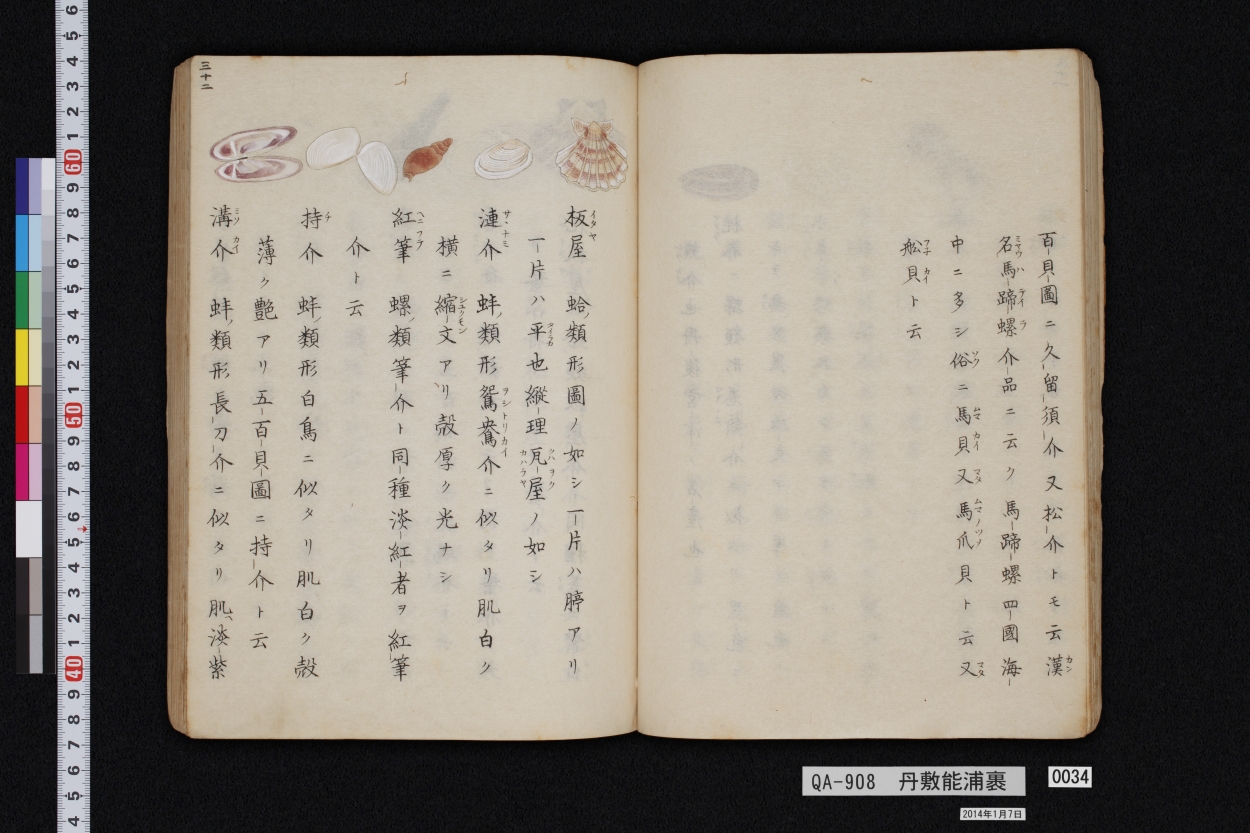 百貝圖ニ久留須介又松介トモ云漢
名馬蹄螺介品ニ云ク馬蹄螺四國海
中ニ多シ俗ニ馬貝又馬爪貝ト云又
舩貝ト云
三十二
板屋 蛤ノ類形圖ノ如シ一片ハ脝アリ
一片ハ平也縱理瓦屋ノ如シ
漣介 蚌ノ類形鴛鴦介ニ似タリ肌白ク
横ニ縮文アリ殼厚ク光ナシ
紅筆 螺ノ類筆介ト同種淡紅者ヲ紅筆
介ト云
持介 蚌ノ類形白鳥ニ似タリ肌白ク殼
薄ク艶アリ五百貝圖ニ持介ト云
溝介 蚌ノ類形長刀介ニ似タリ肌淡紫
QA-908 丹敷能浦裹
0034
2014年1月7日